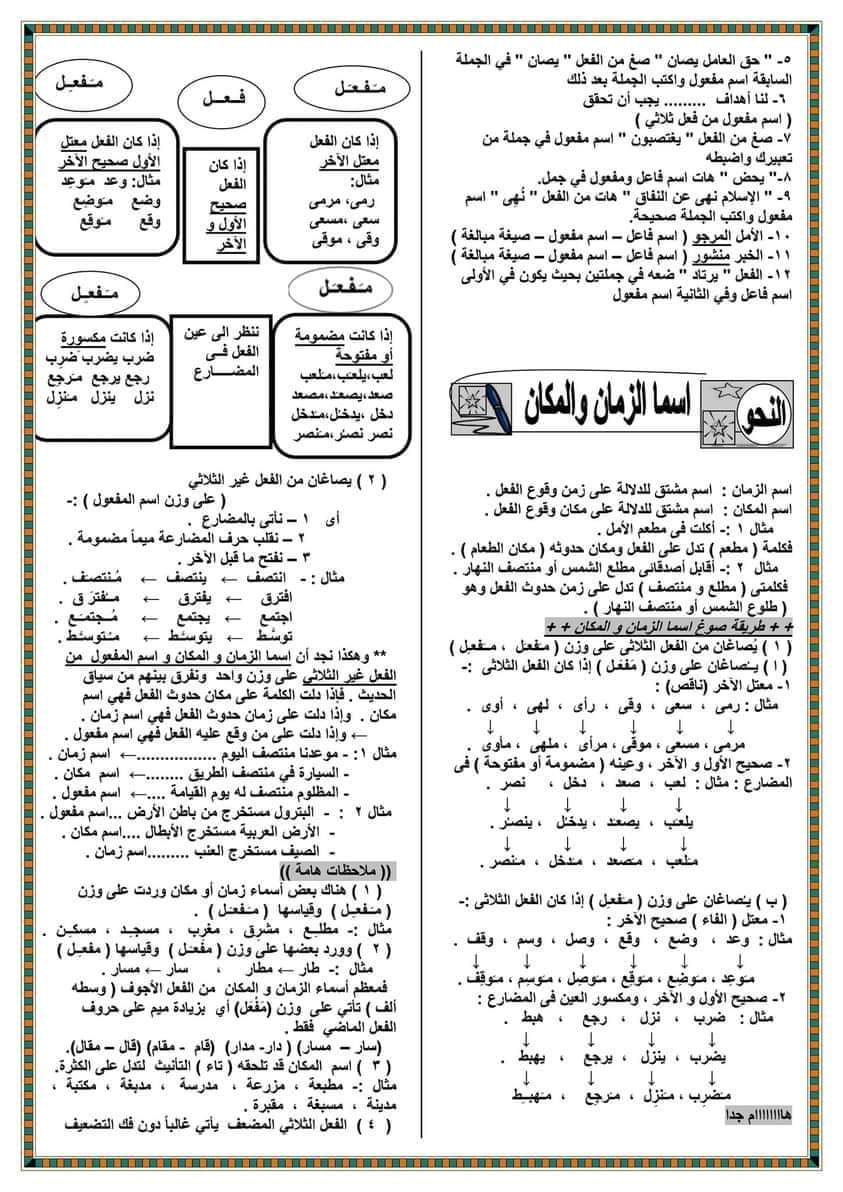 ٥- " حق العامل يصان " صغ من الفعل " يصان " في الجملة
السابقة اسم مفعول واكتب الجملة بعد ذلك
٦- لنا أهداف ......... يجب أن تحقق
( اسم مفعول من فعل ثلاثي )
٧- صغ من الفعل " يغتصبون " اسم مفعول في جملة من
تعبيرك واضبطه
٨-" يحض " هات اسم فاعل ومفعول في جمل.
٩- " الإسلام نهى عن النفاق " هات من الفعل " نُهِى " اسم
مفعول واكتب الجملة صحيحة.
١٠- الأمل المرجو ( اسم فاعل – اسم مفعول – صيغة مبالغة )
١١- الخبر منشور ( اسم فاعل – اسم مفعول – صيغة مبالغة )
١٢- الفعل " يرتاد " ضعه في جملتين بحيث يكون في الأولى
اسم فاعل وفي الثانية اسم مفعول
النحو
اسما الزمان والمكان
اسم الزمان : اسم مشتق للدلالة على زمن وقوع الفعل .
اسم المكان : اسم مشتق للدلالة على مكان وقوع الفعل .
مثال ١ :- أكلت فى مطعم الأمل .
فكلمة ( مطعم ) تدل على الفعل ومكان حدوثه ( مكان الطعام ) .
مثال ٢ :- أقابل أصدقائى مطلع الشمس أو منتصف النهار .
فكلمتى ( مطلع و منتصف ) تدل على زمن حدوث الفعل وهو
( طلوع الشمس أو منتصف النهار ) .
+ + طريقة صوغ اسما الزمان و المكان + +
( ١ ) يُصاغان من الفعل الثلاثى على وزن ( مَفعَل ، مَفعِل )
( ا ) يُصاغان على وزن ( مَفعَل ) إذا كان الفعل الثلاثى :-
١- معتل الآخر (ناقص) :
مثال : رمى ، سعى ، وقى ، رأى ، لهى ، أوى .
↓ ↓ ↓ ↓ ↓ ↓
مرمى ، مسعى ، موقى ، مرأى ، ملهى ، مأوى .
٢- صحيح الأول و الآخر ، وعينه ( مضمومة أو مفتوحة ) فى
المضارع : مثال : لعب ، صعد ، دخل ، نصر .
↓ ↓ ↓ ↓
يلعَب ، يصعَد ، يدخُل ، ينصُر .
↓ ↓ ↓ ↓
مَلعَب ، مَصعَد ، مَدخَل ، مَنصَر .
( ب ) يُصاغان على وزن ( مَفعِل ) إذا كان الفعل الثلاثى :-
١- معتل ( الفاء ) صحيح الآخر :
مثال : وعد ، وضع ، وقع ، وصل ، وسم ، وقف .
↓ ↓ ↓ ↓ ↓ ↓
مَوعِد ، مَوضِع ، مَوقِع ، مَوصِل ، مَوسِم ، مَوقِف .
٢- صحيح الأول و الآخر ، ومكسور العين فى المضارع :
مثال : ضرب ، نزل ، رجع ، هبط .
↓ ↓ ↓ ↓
يضرِب ، ينزِل ، يرجِع ، يهبِط .
↓ ↓ ↓ ↓
مَضرِب ، مَنزِل ، مَرجِع ، مَهبِط .
هااااااام جدا
مَفعَل
فعل
مَفعِل
إذا كان الفعل
معتل الآخر
مثال:
رمى، مرمى
سعى ،مسعى
وقى ، موقى
إذا كان
الفعل
صحيح
الأول و
الآخر
إذا كان الفعل معتل
الأول صحيح الآخر
مثال: وعد مَوعِد
وضع مَوضِع
وقع مَوقع
مَفعَل
مَفعِل
إذا كانت مضمومة
أو مفتوحة
لعب،يلعَب،مَلعب
صعد،يصعَد،مصعد
دخل ،يدخُل،مَدخل
نصر نصُر،مَنصر
ننظر الى عين
الفعل فى
المضارع
إذا كانت مكسورة
ضرب يضرِب َضرِب
رجع يرجع مَرجِع
نزل ينزل مَنزِل
( ٢ ) يصاغان من الفعل غير الثلاثي
( على وزن اسم المفعول ) :-
أى ١ – نأتى بالمضارع .
٢ – نقلب حرف المضارعة ميماً مضمومة .
٣ – نفتح ما قبل الآخر .
مثال : - انتصف ← ينتصف ← مُنتصَف .
افترق ← يفترق ← مُفترَق .
اجتمع ← يجتمع ← مُجتمَع .
توسَّط ← يتوسَّط ← مُتوسَّط .
** وهكذا نجد أن اسما الزمان و المكان و اسم المفعول من
الفعل غير الثلاثي على وزن واحد ونفرق بينهم من سياق
الحديث . فإذا دلت الكلمة على مكان حدوث الفعل فهي اسم
مكان . وإذا دلت على زمان حدوث الفعل فهي اسم زمان .
← وإذا دلت على من وقع عليه الفعل فهي اسم مفعول .
مثال ١: - موعدنا منتصف اليوم .................← اسم زمان .
- السيارة في منتصف الطريق ........← اسم مكان .
- المظلوم منتصف له يوم القيامة ....← اسم مفعول .
مثال ٢ : - البترول مستخرج من باطن الأرض ...اسم مفعول .
- الأرض العربية مستخرج الأبطال ....اسم مكان .
- الصيف مستخرج العنب .........اسم زمان .
(( ملاحظات هامة ))
( ١ ) هناك بعض أسماء زمان أو مكان وردت على وزن
( مَفعِل ) وقياسها ( مَفعَل ) .
مثال :- مطلِع ، مشرِق ، مغرِب ، مسجِد ، مسكِن .
( ٢ ) وورد بعضها على وزن ( مفعَل ) وقياسها ( مفعِل )
مثال :- طار← مطار ، سار ← مسار .
فمعظم أسماء الزمان و المكان من الفعل الأجوف ( وسطه
ألف ) تأتي على وزن (مَفْعَل) أي بزيادة ميم على حروف
الفعل الماضي فقط .
(سار – مسار) ( دار- مدار) (قام - مقام) (قال – مقال).
( ٣ ) اسم المكان قد تلحقه ( تاء ) التأنيث لتدل على الكثرة.
مثال:- مطبعة ، مزرعة ، مدرسة ، مدبغة ، مكتبة ،
مدينة ، مسبغة ، مقبرة .
( ٤ ) الفعل الثلاثي المضعف يأتي غالباً دون فك التضعيف